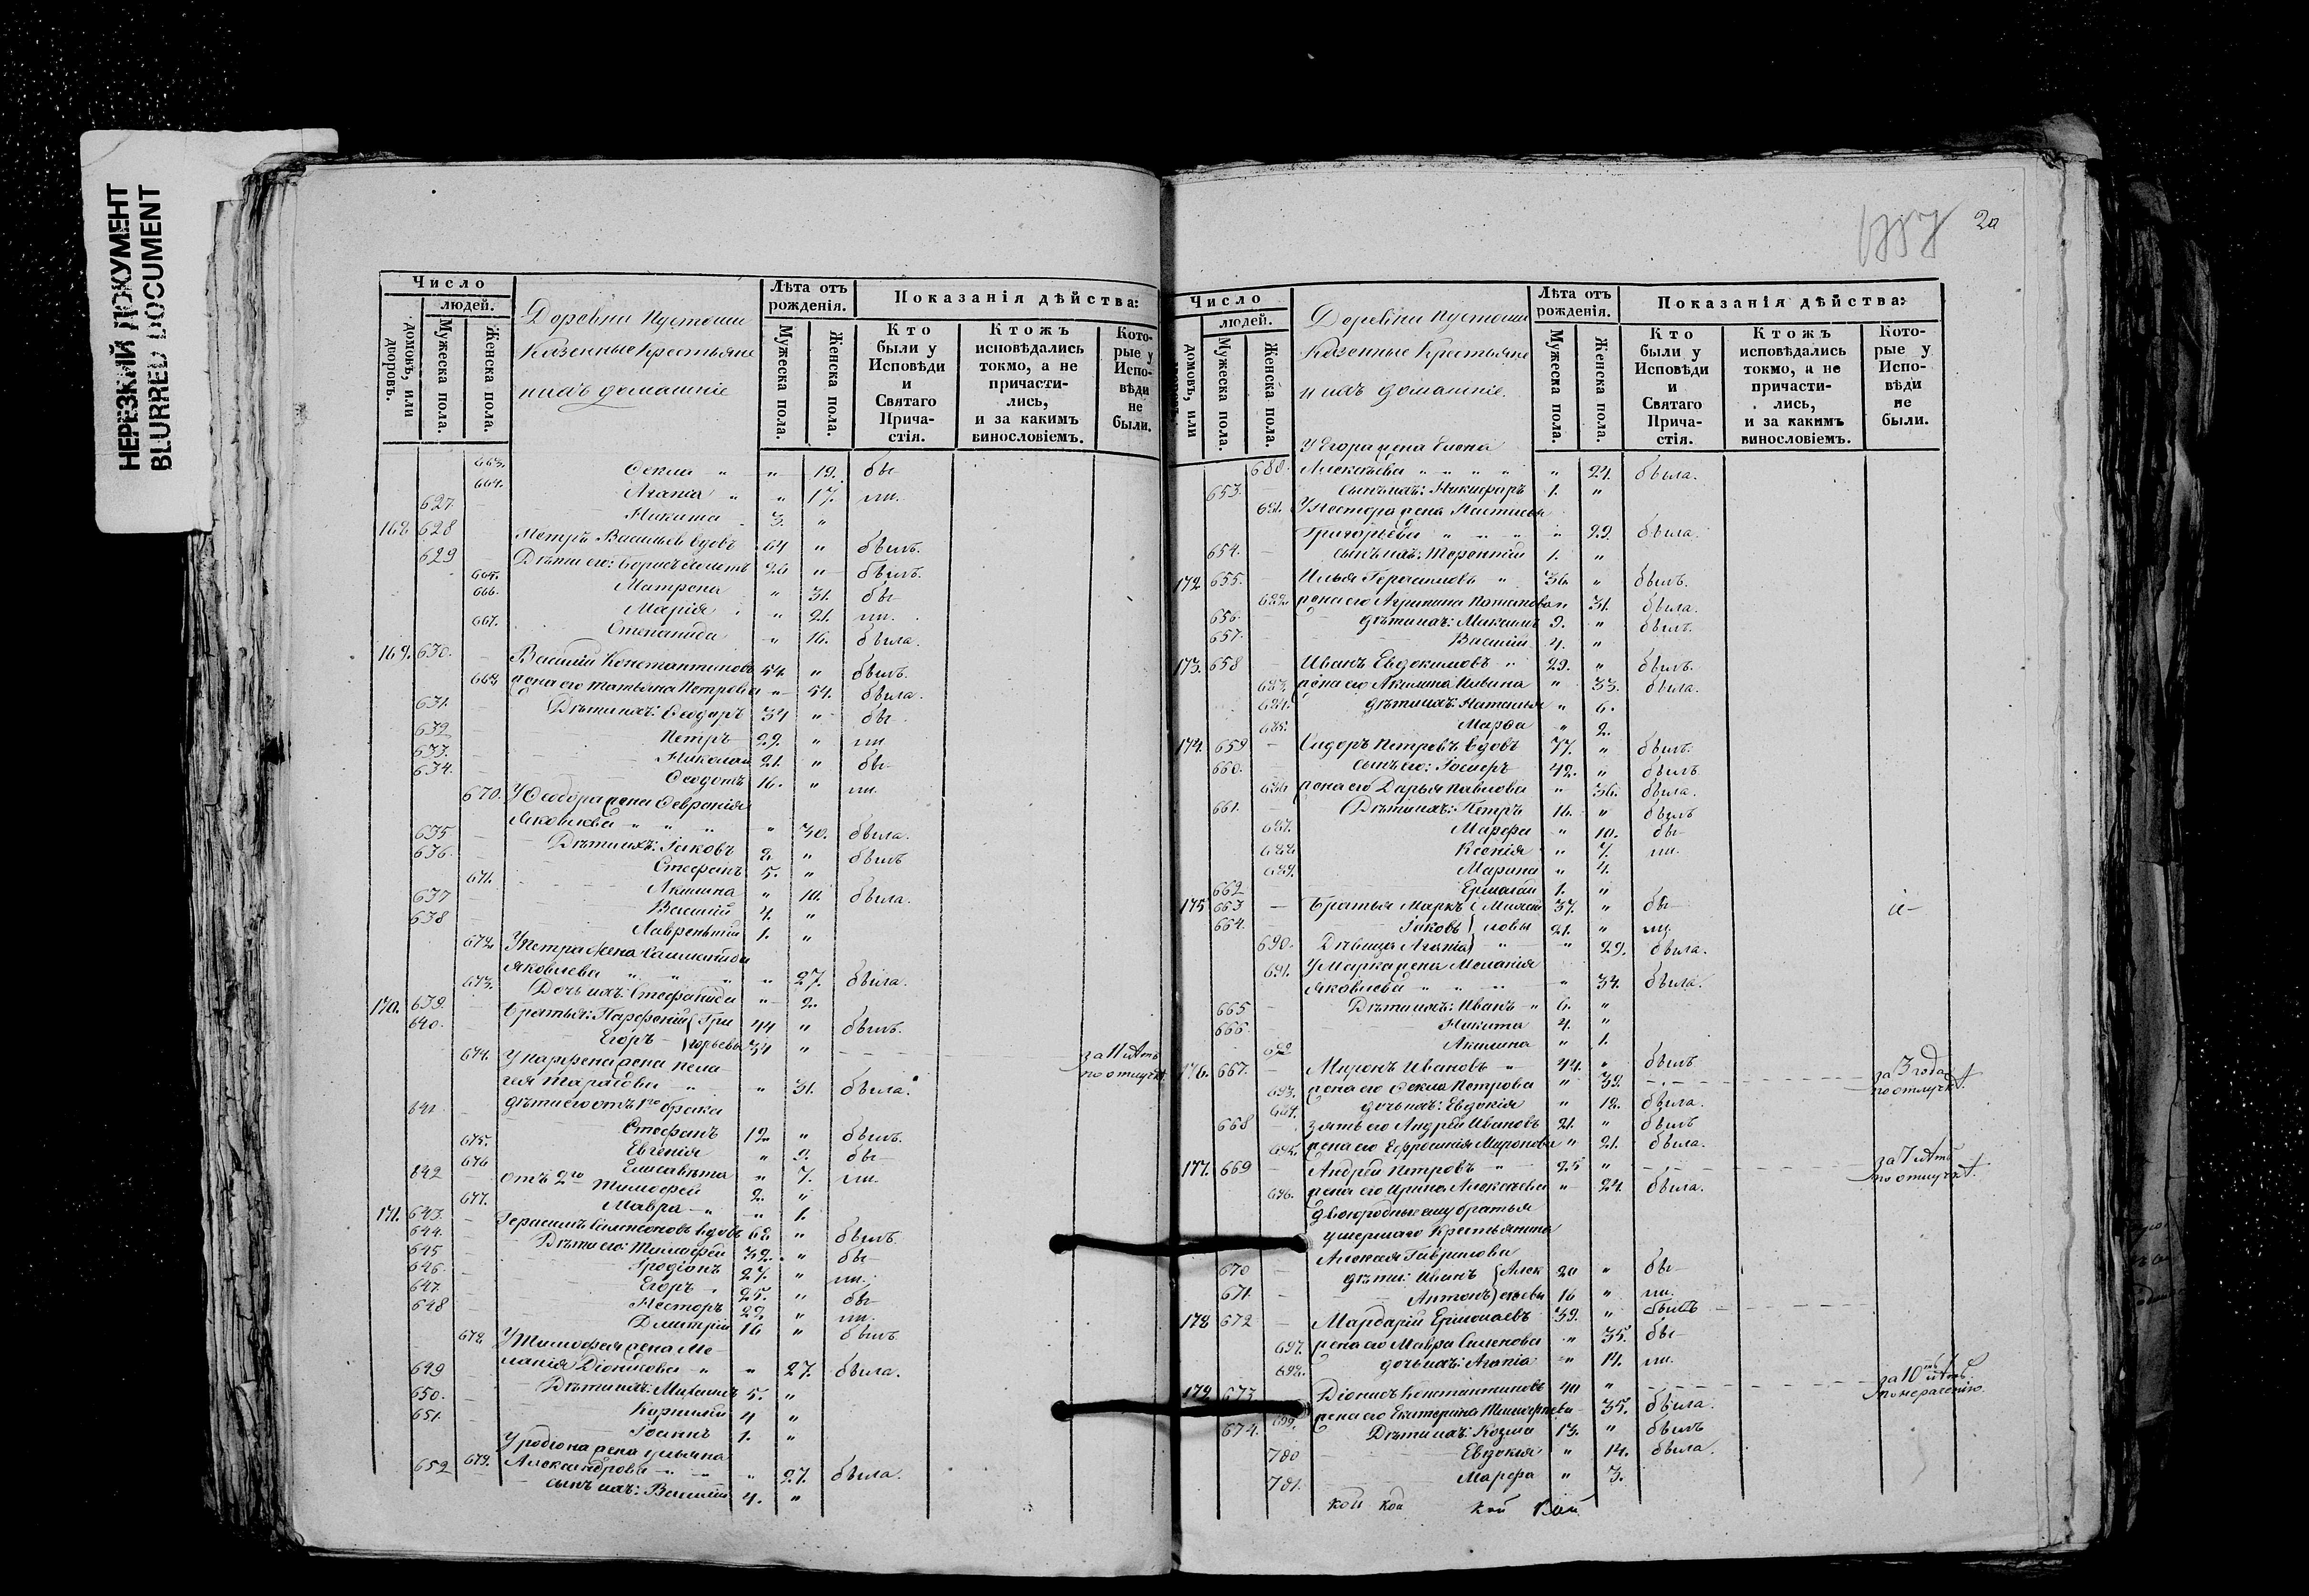 НЕРЕЗКИЙ ДОКУМЕНТ
BLURRED DOCUMENT
Число
людей.
домовъ, или дворовъ.
Мужеска пола.
Женска пола.
Деревни Пустоши
Казенные Крестьяне
и ихъ домашніе
Лѣта отъ рожденія.
Мужеска пола.
Женска пола.
Показанія дѣйства:
Кто были у Исповѣди и Святаго Причастія.
Ктожъ исповѣдались токмо, а не причастились, и за какимъ винословіемъ.
Которые у Исповѣди не были.
663. Ѳекла " " 19. бы-
664. Агапія " " 17. ли.
627. Никита 3. "
168 628 Петръ Васильевъ вдовъ 64 " былъ.
629 Дѣти его: Борисъ 26 " былъ.
665. Матрена " 31. бы-
666. Марія " 21. ли.
667. Степанида " 16. была.
169. 630. Василій Константиновъ 54. " былъ.
668 жена его Татьяна Петрова " 54. была.
631. Дѣти ихъ: Ѳеодоръ 34 " бы-
632 Петръ 29. " ли
633. Николай 21. " бы-
634. Ѳеодотъ 16. " ли.
670. У Ѳеодора жена Февронія
Яковлева " " " " 30. была.
635 Дѣти ихъ: Іаковъ 9. " былъ
636. Стефанъ 5. "
671. Акилина " 10. была.
637 Василій 4. "
638 Лаврентій 1. "
672 У Петра жена
Яковлева " " " 27. была.
673. Дочь ихъ: Стефанида " 2.
170. 639. Братья: Парфеній Гри 44 " былъ.
640. Егоръ горьевы 34 " за 11 лѣтъ
по отлучкѣ
674. У Парфена жена Пела-
гея Тарасова " " 31. была.
641 дѣти его отъ 1го брака
Стефанъ 12 " былъ.
675. Евгенія " 9. бы-
676 Елисавета " 7. ли.
642 отъ 2го Тимофей 2. "
677. Мавра " " 1.
171. 643. Герасимъ вдовъ 62 " былъ
644. Дѣти его: Тимофей 32. " бы-
645 Иродіонъ 27. " ли.
646. Егоръ 25. " бы-
647. Несторъ 22. " ли.
648 Димитрій 16 " былъ
678 У Тимофея жена Ме-
ланія Діонисова " " 27. была.
649 Дѣти ихъ: 5. "
650. Корнилій 4 "
651. Іоаннъ 1. "
679. У Родіона жена Ульяна
Александрова " " " 27. была.
652 сынъ ихъ: Василій 4. "
20
Число
людей.
домовъ, или
Мужеска пола.
Женска пола.
Деревни Пустоши
Казенные Крестьяне
и ихъ домашніе.
Лѣта отъ рожденія.
Мужеска пола.
Женска пола.
Показанія дѣйства:
Кто были у Исповѣди и Святаго Причастія.
Ктожъ исповѣдались токмо, а не причастились, и за какимъ винословіемъ.
Которые у Исповѣди не были.
У Егора жена Елена
680. Алексѣева " " " " 24. была.
653. сынъ ихъ: Никифоръ 1. "
681. У Нестора жена Настасья
Григорьева " " " " 22. была.
654. сынъ ихъ: Терентій 1. "
172 655. Илья Герасимовъ " 36. " былъ.
682. жена его Агрипина " 31. была.
656. дѣти ихъ: Максимъ 9. " былъ.
657. Василій 4. "
173. 658 Иванъ Евдокимовъ " 29. " былъ.
683. жена его Акилина Ильина " 33. была.
684. дѣти ихъ: Наталья " 6.
685. Марѳа " 2.
174. 659 Сидоръ Петровъ вдовъ 77. " былъ.
660. сынъ его: 42. " былъ
686 жена его Дарья Павлова " 36. была.
661. Дѣти ихъ: Петръ 16. " былъ
687. Марфа " 10. бы-
688 Ксенія " 7. ли.
689. Марина " 4.
662 Ермолай 1. "
175 663 Братья Маркъ 37. " бы-
664. Іаковъ ловы 21. " ли.
690. Дѣвица Агапія " 29. была.
691. У Марка жена Меланія
Яковлева " " " " 34. была.
665 Дѣти ихъ: Иванъ " 6. "
666. Никита 4. "
692 Акилина " 1.
176. 667. Миронъ Ивановъ " 44. " былъ
693. жена его Ѳекла Петрова " 39. за 3 года
по отлучкѣ.
694. дочь ихъ: Евдокія " 12. была.
668 зять его Андрей Ивановъ 21. " былъ
695. жена его Ефросинія Миронова " 21. была.
177. 669 Андрей Петровъ " 25 " за 7 лѣтъ
по отлучкѣ
696. жена его Ирина Алексѣева " 24. была.
двоюродные ему братья
умершаго Крестьянина
Алексея Гаврилова
670 дѣти: Иванъ Алек 20 " бы-
671. Антонъ сѣевы 16 " ли.
178 672 Мардарій Ермолаевъ 39. " былъ
697. жена его Мавра Семенова " 35. бы-
698. дочь ихъ: Агапія " 14. ли.
179 673. Діонисъ Константиновъ 40 " за 10ть лѣтъ
по нераченію.
699. жена его Екатерина Тимофеева 35. была.
674. Дѣти ихъ: Козма 13. " былъ
700 Евдокія " 14. была.
701. Марфа " 3.